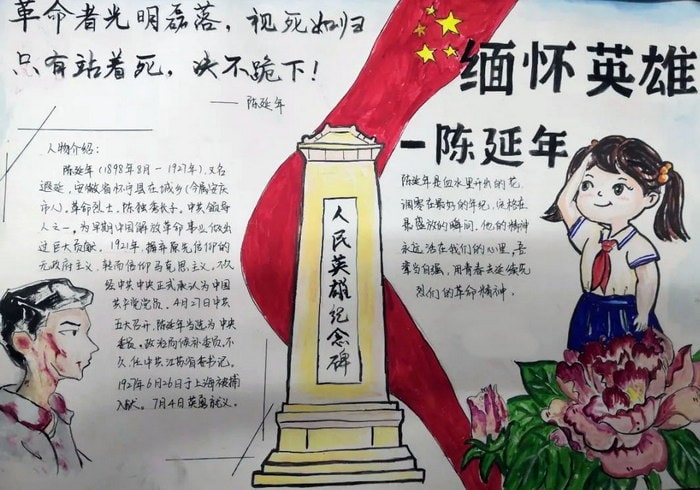 革命者光明磊落，视死如归
只有站着死，决不跪下！
——陈延年
缅怀英雄
—陈延年
人物介绍：
陈延年（1898年8月—1927年），又名
遐延，安徽省怀宁县在城乡（今属安庆
市人）。革命烈士，陈独秀长子，中共领导
人之一，为早期中国解放革命事业做出
过巨大贡献。1921年，摒弃原先信仰的
无政府主义，转而信仰马克思主义，不久
经中共中央正式承认为中国
共产党党员。4月27日中共
五大召开，陈延年当选为中央
委员、政治局候补委员，不
久，任中共江苏省委书记。
1927年6月26日于上海被捕
入狱。7月4日英勇就义。
人民英雄纪念碑
陈延年是血水里开出的花
凋零在最好的年纪，定格在
最盛放的瞬间，他的精神
永远活在我们的心里，吾
辈当自强，用青春去延续先
烈们的革命精神。